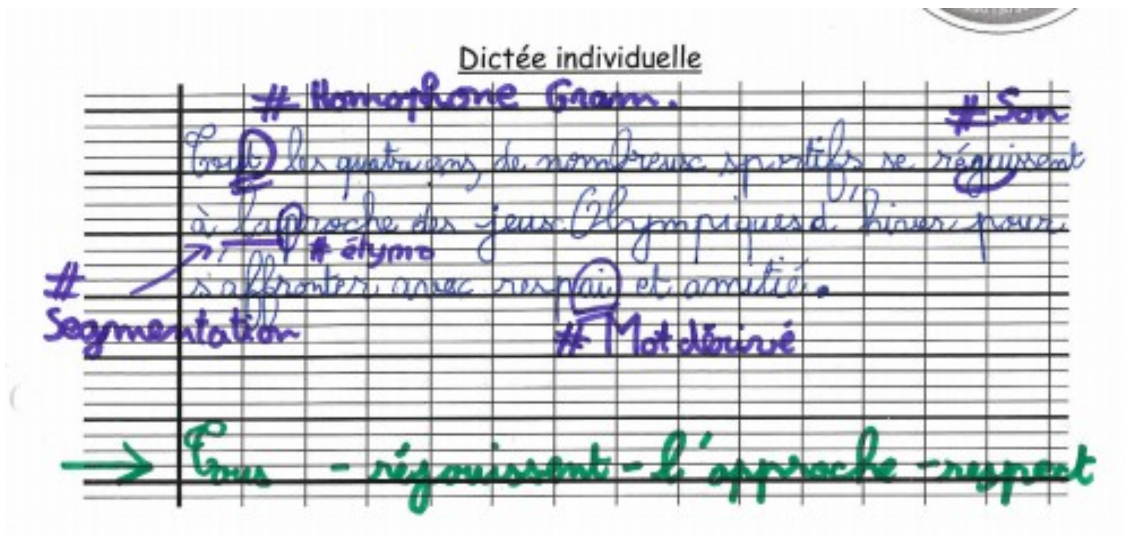 Dictée individuelle
# Homophone Gram.
# Son
Tout les quatre ans, de nombreux sportifs se réguissent
à laproche des jeux Olympiques d'hiver pour
# étymo
s'affronter avec respai et amitié.
#
Segmentation
# Mot dérivé
→ Tous - réjouissent - l'approche - respect